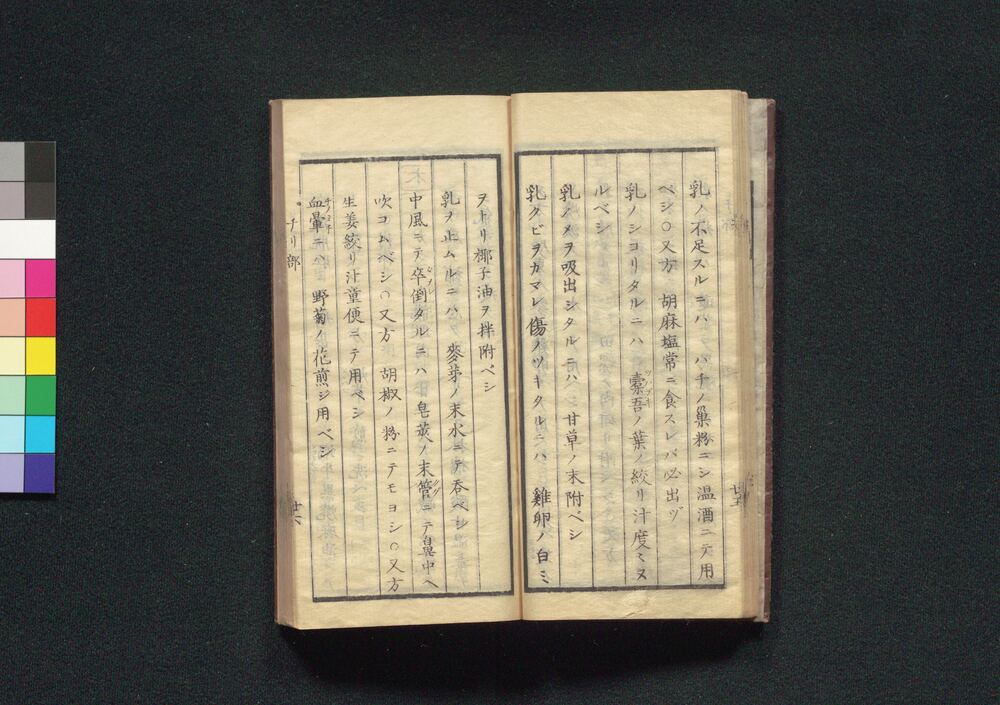 乳ノ不足スルニハ ハチノ巣粉ニシ温酒ニテ用
ベシ○又方 胡麻塩常ニ食スレバ必出ヅ
乳ノシコリタルニハ 槖吾ノ葉ノ絞リ汁度〻ヌ
ルベシ
乳ノメヲ吸出シタルニハ 甘草ノ末附ベシ
乳クビヲカマレ傷ノツキタルニハ 雞卵ノ白ミ
ヲトリ椰子油ヲ拌附ベシ
乳ヲ止ムルニハ 麥芽ノ末水ニテ呑ベシ
中風ニテ卒倒タルニハ 皂莢ノ末管ニテ鼻中ヘ
吹コムベシ○又方 胡椒ノ粉ニテモヨシ○又方
生姜絞リ汁童便ニテ用ベシ
血暈ニハ 野菊ノ花煎ジ用ベシ
チリ部
廿六